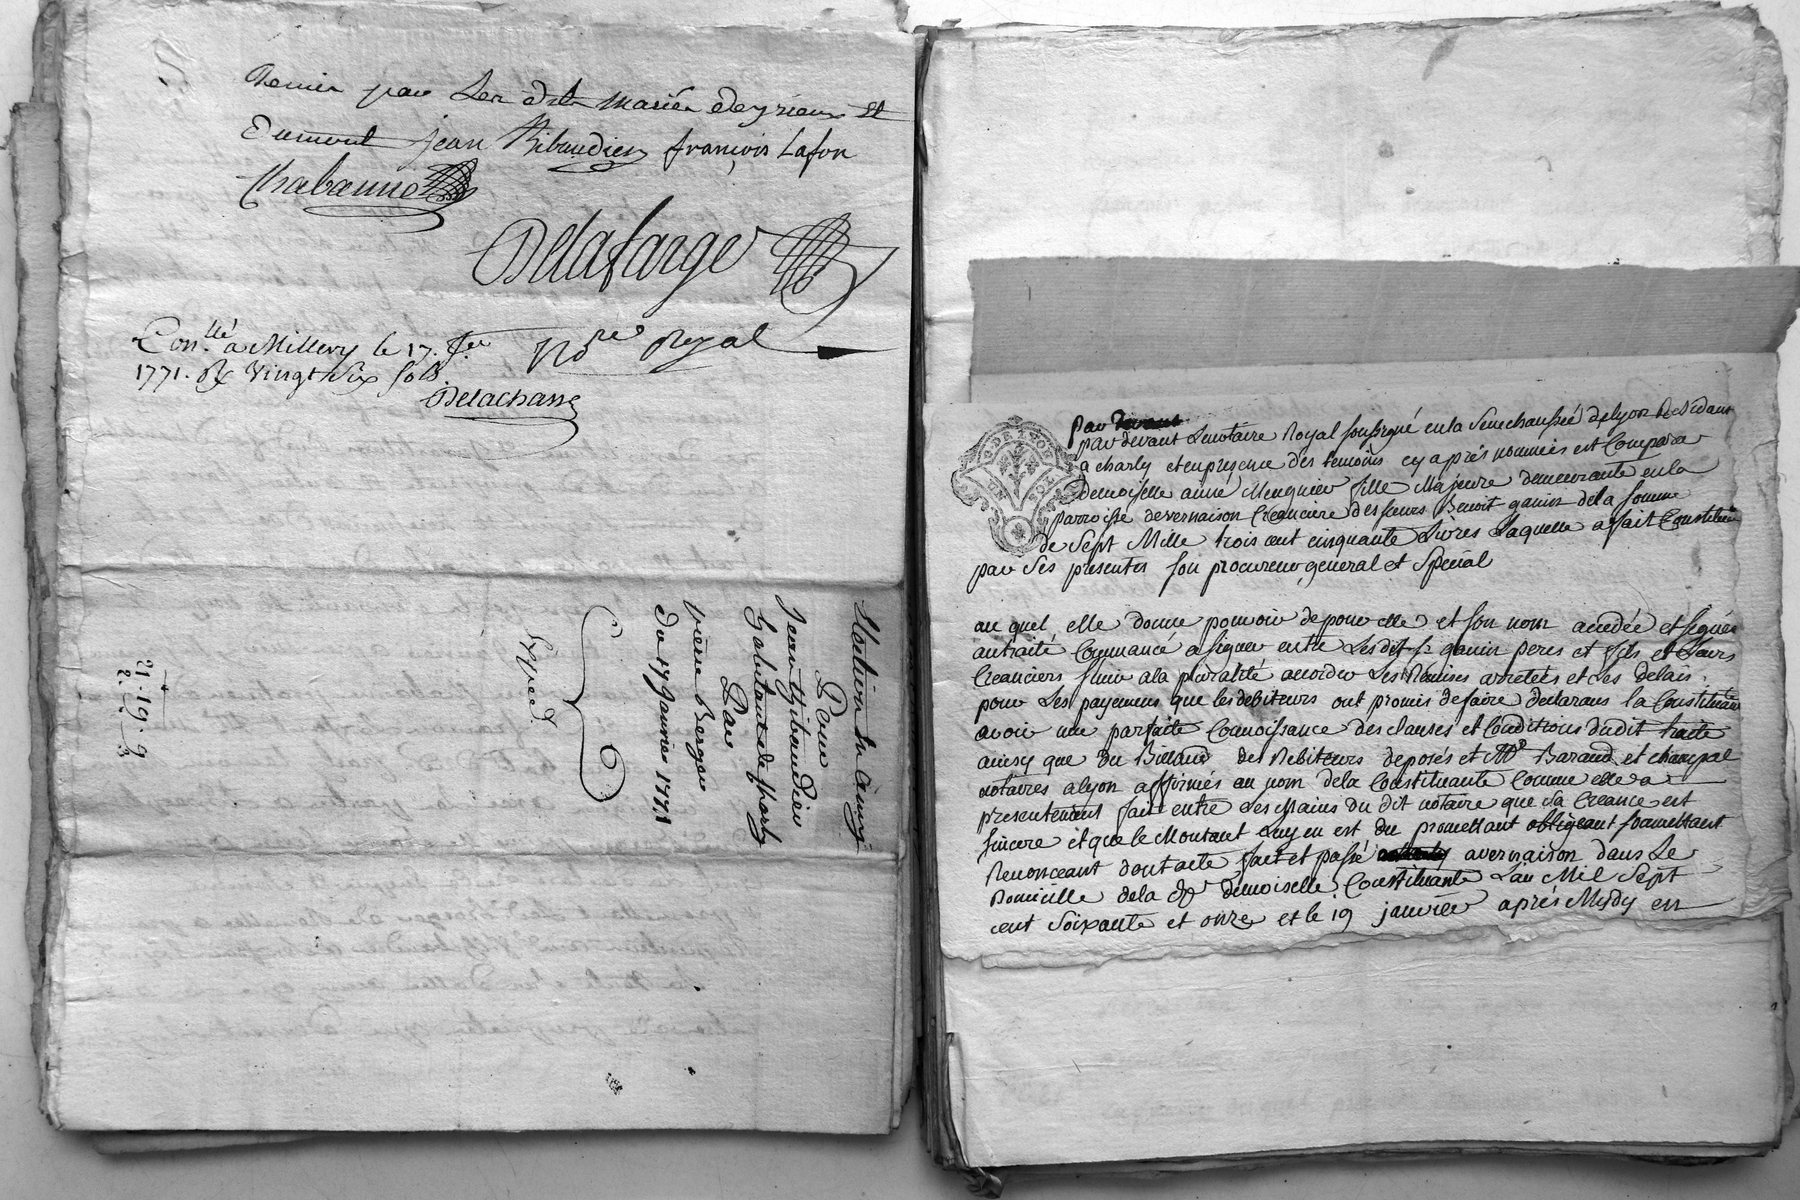 par Les dits mariés deyrieux et
Dumont jean Thibaudier françois Lafon
Chabanne
Delafarge
Nore Royal
Con.llé a Millery le 17. Jer
1771. Rx vingt six sols
Delachass
en Campe
Pour
Jean Thibaudier
habitant de Charly
Par
pierre Bergeon
du 17 Janvier 1771
Exped.
21-19-9
par devant
par devant Le notaire Royal soussigné en la Senechaussée de lyon Residant
a charly et en presence des temoins cy après nommés est Compara
demoiselle aimé Meugnier fille Majeure demeurante en la
parroisse de vernaison Creanciere des sieurs Benoit ganin de la somme
de Sept Mille trois cent cinquante Livres Laquelle a fait Constitué
par Ses presentes son procureur general et Special
au quel elle donne pouvoir de pour elle et son nom accedée et signée
au traité Commancé a signer entre Les dit Sr ganin peres et fils et Leurs
Creanciers suivre a la pluralité accorder Les Remises arretées et Les delais
pour Les payemens que les debiteurs ont promis de faire declarans la Constituante
avoir une parfaite Connoissance des clauses et Conditions dudit traité
ainsy que du Billand des Debiteurs deposés et Me Baraud et champal
notaires a lyon affirmés au nom de la Constituante Comme elle a
presentement fait entre Les Mains du dit notaire que sa Creance est
sincere et que le Montant Luy en est du promettant obligeant soumettant
Renonceant dont acte fait et passé a vernaison dans Le
Domicille de la de demoiselle Constituante L'an Mil Sept
cent Soixante et onze et le 19 janvier après Midy en